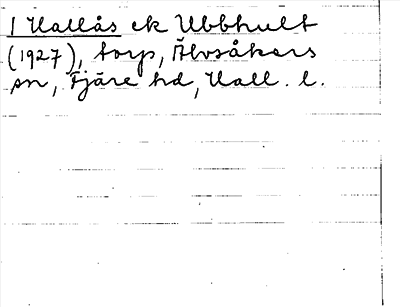 1 Hallås ek Ubbhult
(1927), torp, Älvsåkers
sn, Fjäre hd, Hall. l.